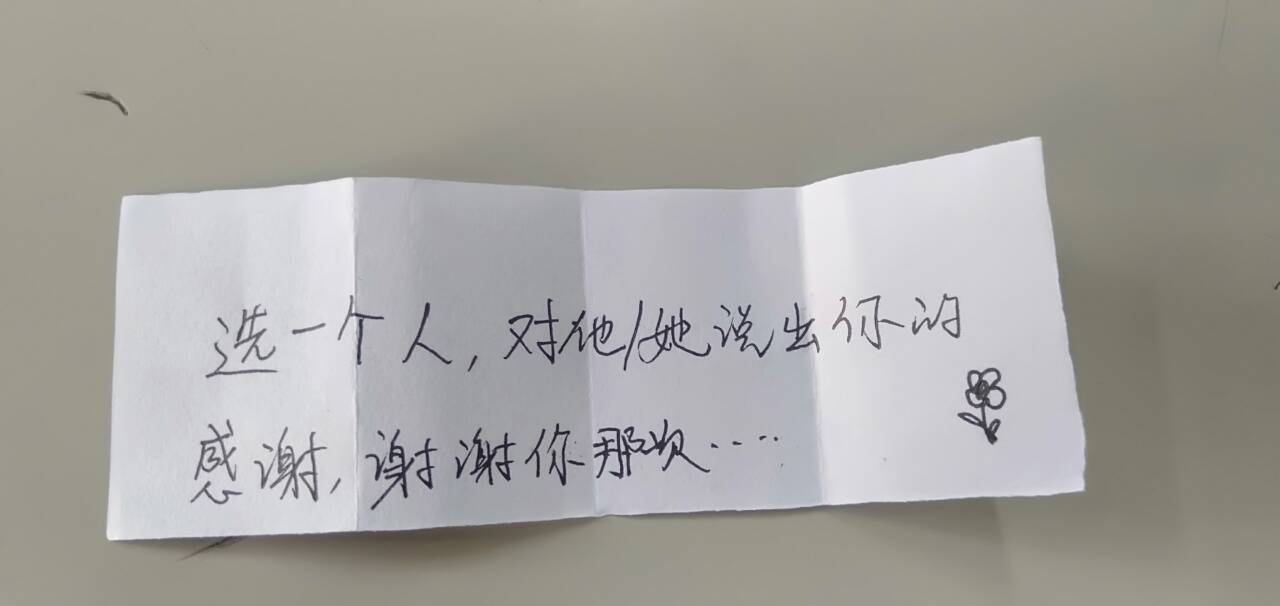 选一个人,对他/她说出你的
感谢,谢谢你那次.....